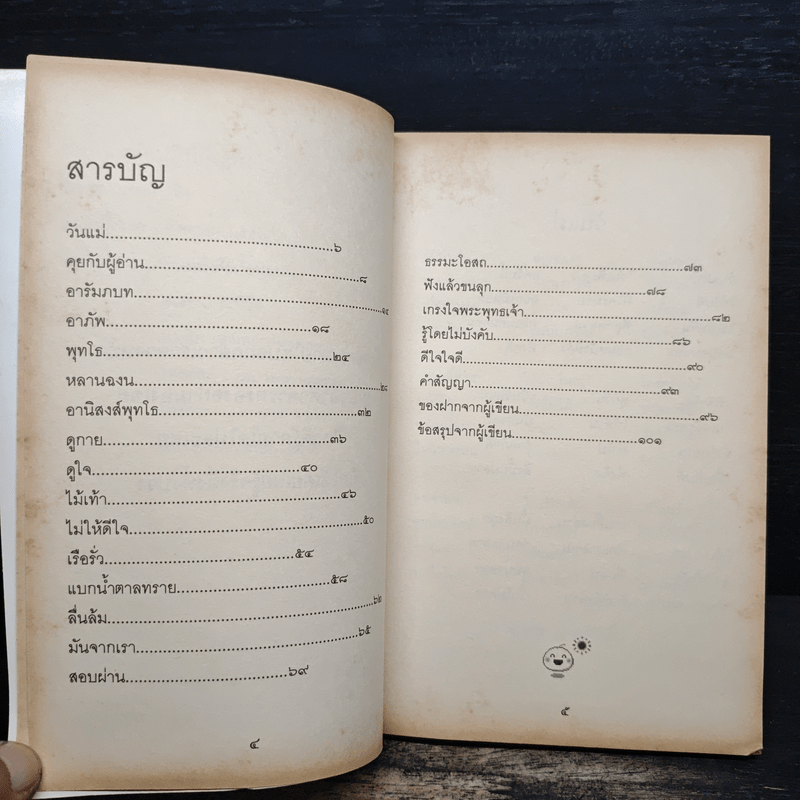 สารบัญ
วันแม่......................................................๖
คุยกับผู้อ่าน..................................................๘
อารัมภบท
อาภัพ..................................................๑๘
พุทโธ......................................................๒๔
หลานองน
อานิสงส์พุทโธ..............................................๓๒
ดูกาย......................................................๓๖
ดูใจ..................................................๔๐
ไม้เท้า......................................................๔๖
ไม่ให้ดีใจ......................................................๕๐
เรือรั่ว..............................................๕๔
แบกน้ำตาลทราย....................................๕๘
ลื่นล้ม..........................................................๖๒
มันจากเรา..................................................๖๕
สอบผ่าน......................................๖๙
๔
ธรรมะโอสถ..............................................๗๓
ฟังแล้วขนลุก....................................๗๘
เกรงใจพระพุทธเจ้า............................................๘๒
รู้โดยไม่บังคับ..........................................๘๖
ดีใจใจดี....................................................๙๐
คำสัญญา............................................๙๓
ของฝากจากผู้เขียน..........................................๙๖
ข้อสรุปจากผู้เขียน..............................๑๐๑
๕